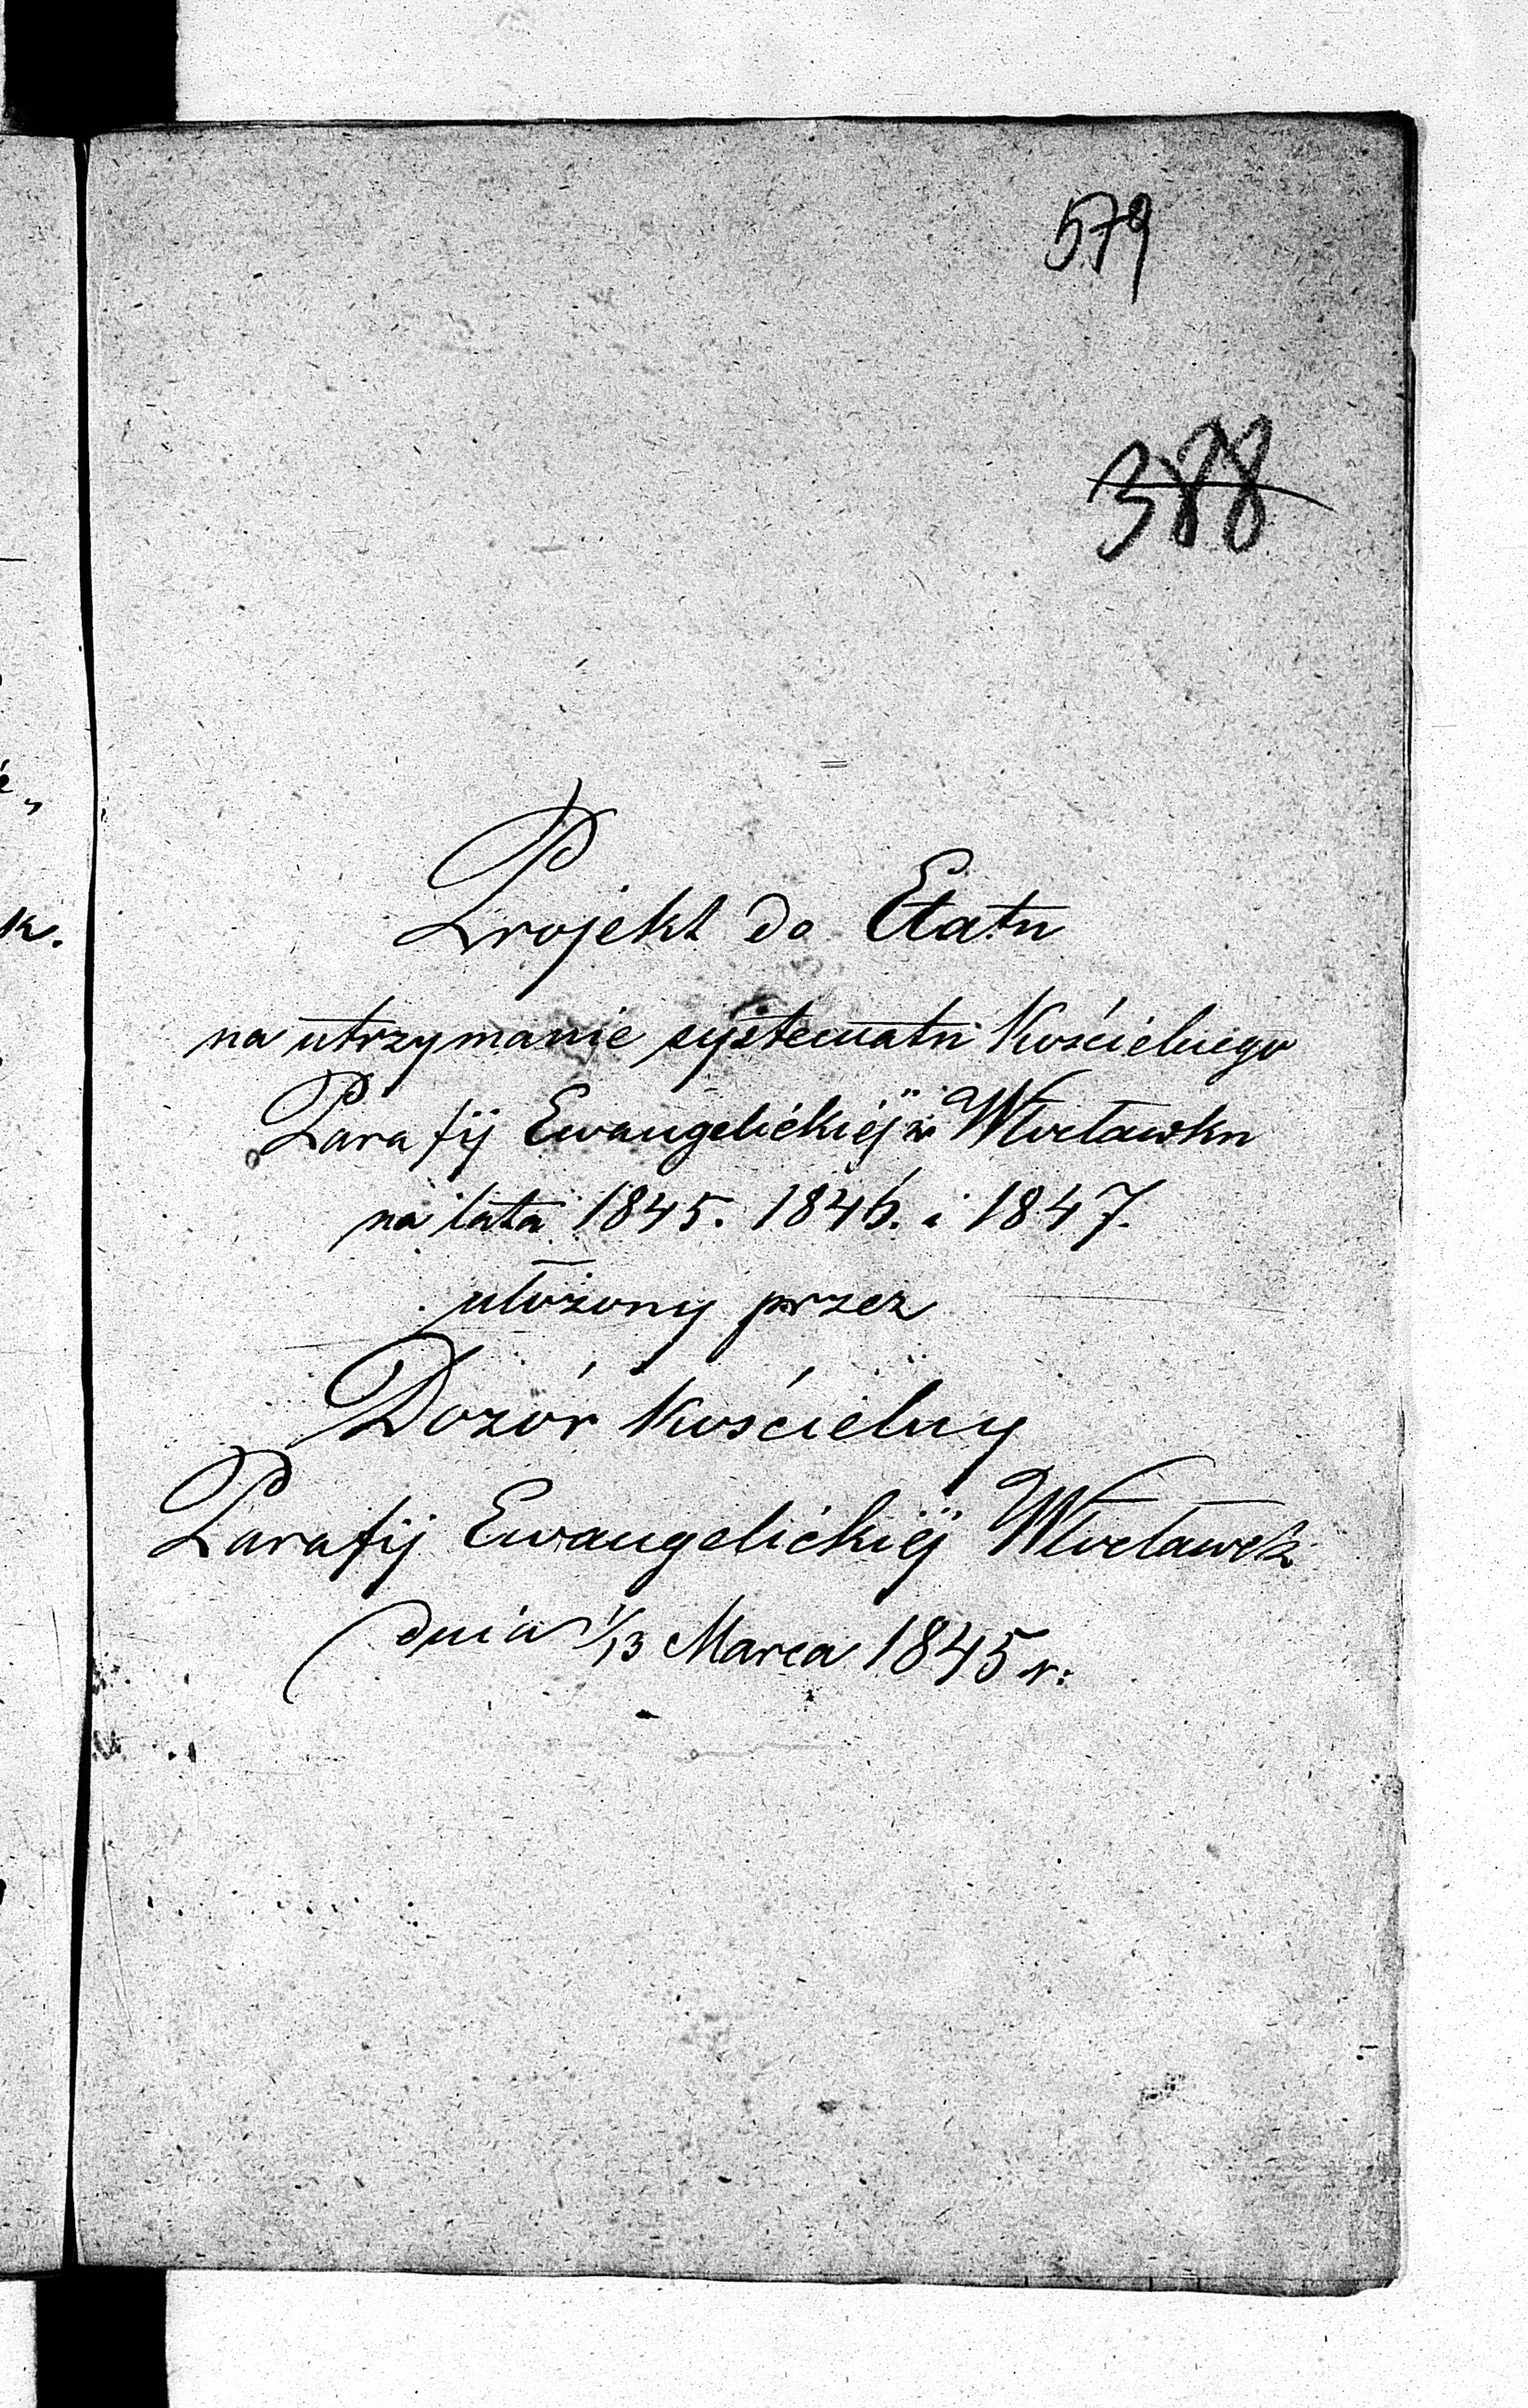 579
388
Projekt do Etatu
na utrzymanie systematu Kościelnego
Parafij Ewangelickiéj w Włocławku
na lata 1845. 1846. i 1847.
ułożony przez
Dozór Kościelny
Parafij Ewangelickiéj Włocławek
dnia 1/13 Marca 1845 r:
k.